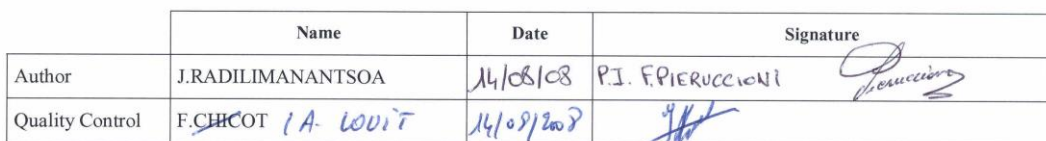 Name Date Signature
Author J.RADILIMANANTSOA 14/08/08 P.I. F.PIERUCCIONI Pieruccioni
Quality Control F.CHICOT / A. LOUIT 14/08/2008